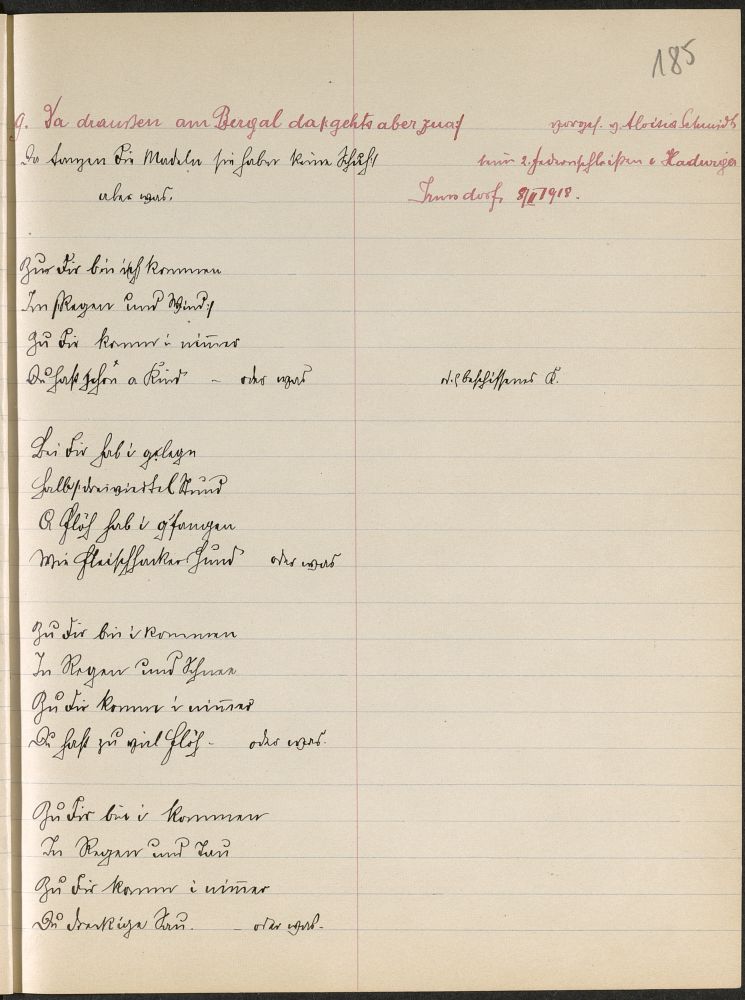 185
9. Da draußen am Bergal da geht's aber zua
vorges. v. Aloisia Schmidt
Da tanzen die Madeln sie haben keine Schuh
beim 2. Federnschleißen
aber was.
8/II 1918.
Zu dir bin ich kommen
In Regen und Wind
Zu dir komm i nimmer
Du hast schon a Kind – oder was
od. beschissenes K.
Bei dir hab i gelegn
Halbe dreiviertel Stund
A Flöh hab i g'fangen
Wie Fleischhackers Hund oder was
Zu dir bin i kommen
In Regen und Schnee
Zu dir komm i nimmer
Du hast zu viel Flöh – oder was.
Zu dir bin i kommen
In Regen und Tau
Zu dir komm i nimmer
Du dreckige Sau. – oder was.